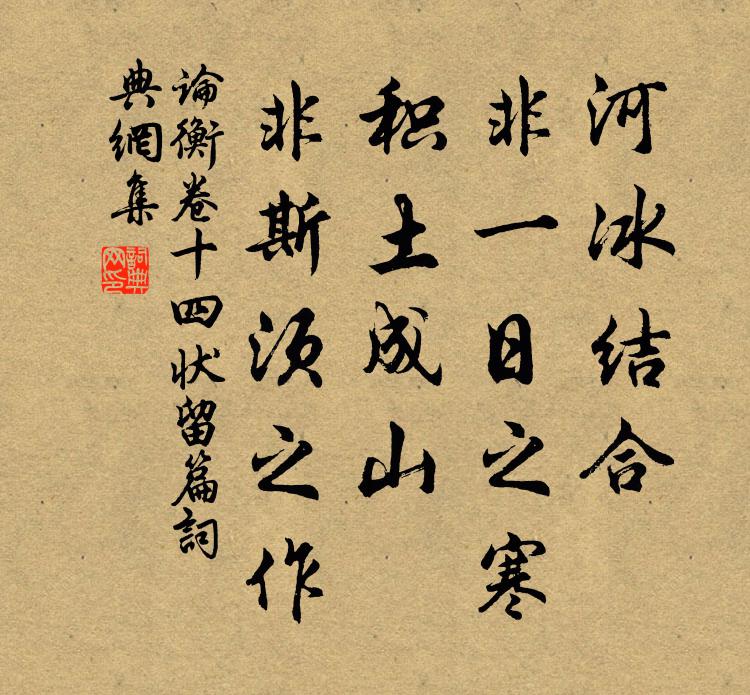 河冰结合
非一日之寒
积土成山
非斯须之作
論衡卷十四状留篇詞
典網集
詞典
网印